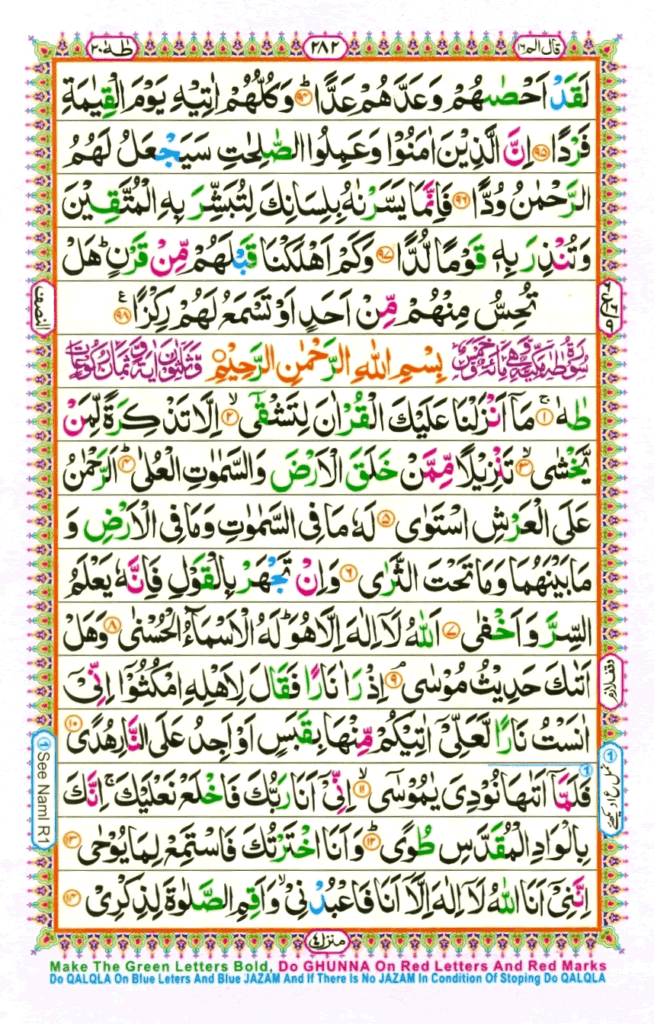 قال الم ١٦
٢٨٢
طٰهٰ ٢٠
لَقَدْ اَحْصٰىهُمْ وَعَدَّهُمْ عَدًّا ؕ﴿٩٤﴾ وَكُلُّهُمْ اٰتِيْهِ يَوْمَ الْقِيٰمَةِ
فَرْدًا ﴿٩٥﴾ اِنَّ الَّذِيْنَ اٰمَنُوْا وَعَمِلُوا الصّٰلِحٰتِ سَيَجْعَلُ لَهُمُ
الرَّحْمٰنُ وُدًّا ﴿٩٦﴾ فَاِنَّمَا يَسَّرْنٰهُ بِلِسَانِكَ لِتُبَشِّرَ بِهِ الْمُتَّقِيْنَ
وَتُنْذِرَ بِهٖ قَوْمًا لُّدًّا ﴿٩٧﴾ وَكَمْ اَهْلَكْنَا قَبْلَهُمْ مِّنْ قَرْنٍ ؕ هَلْ
تُحِسُّ مِنْهُمْ مِّنْ اَحَدٍ اَوْ تَسْمَعُ لَهُمْ رِكْزًا ﴿٩٨﴾
النصف
بِسْمِ اللهِ الرَّحْمٰنِ الرَّحِيْمِ
طٰهٰ ۚ﴿١﴾ مَاۤ اَنْزَلْنَا عَلَيْكَ الْقُرْاٰنَ لِتَشْقٰٓى ۙ﴿٢﴾ اِلَّا تَذْكِرَةً لِّمَنْ
يَّخْشٰى ۙ﴿٣﴾ تَنْزِيْلًا مِّمَّنْ خَلَقَ الْاَرْضَ وَالسَّمٰوٰتِ الْعُلٰى ؕ﴿٤﴾ اَلرَّحْمٰنُ
عَلَى الْعَرْشِ اسْتَوٰى ﴿٥﴾ لَهٗ مَا فِى السَّمٰوٰتِ وَمَا فِى الْاَرْضِ وَ
مَا بَيْنَهُمَا وَمَا تَحْتَ الثَّرٰى ﴿٦﴾ وَاِنْ تَجْهَرْ بِالْقَوْلِ فَاِنَّهٗ يَعْلَمُ
السِّرَّ وَاَخْفٰى ﴿٧﴾ اَللهُ لَاۤ اِلٰهَ اِلَّا هُوَ ؕ لَهُ الْاَسْمَآءُ الْحُسْنٰى ﴿٨﴾ وَهَلْ
اَتٰىكَ حَدِيْثُ مُوْسٰى ۘ﴿٩﴾ اِذْ رَاٰ نَارًا فَقَالَ لِاَهْلِهِ امْكُثُوْۤا اِنِّىْۤ
اٰنَسْتُ نَارًا لَّعَلِّىْۤ اٰتِيْكُمْ مِّنْهَا بِقَبَسٍ اَوْ اَجِدُ عَلَى النَّارِ هُدًى ﴿١٠﴾
فَلَمَّاۤ اَتٰىهَا نُوْدِىَ يٰمُوْسٰى ؕ﴿١١﴾ اِنِّىْۤ اَنَا رَبُّكَ فَاخْلَعْ نَعْلَيْكَ ۚ اِنَّكَ
بِالْوَادِ الْمُقَدَّسِ طُوًى ؕ﴿١٢﴾ وَاَنَا اخْتَرْتُكَ فَاسْتَمِعْ لِمَا يُوْحٰى ﴿١٣﴾
اِنَّنِىْۤ اَنَا اللهُ لَاۤ اِلٰهَ اِلَّاۤ اَنَا فَاعْبُدْنِىْ ۙ وَاَقِمِ الصَّلٰوةَ لِذِكْرِىْ ﴿١٤﴾
① See Naml R1
منزل ٤
Make The Green Letters Bold, Do GHUNNA On Red Letters And Red Marks
Do QALQLA On Blue Leters And Blue JAZAM And If There Is No JAZAM In Condition Of Stoping Do QALQLA